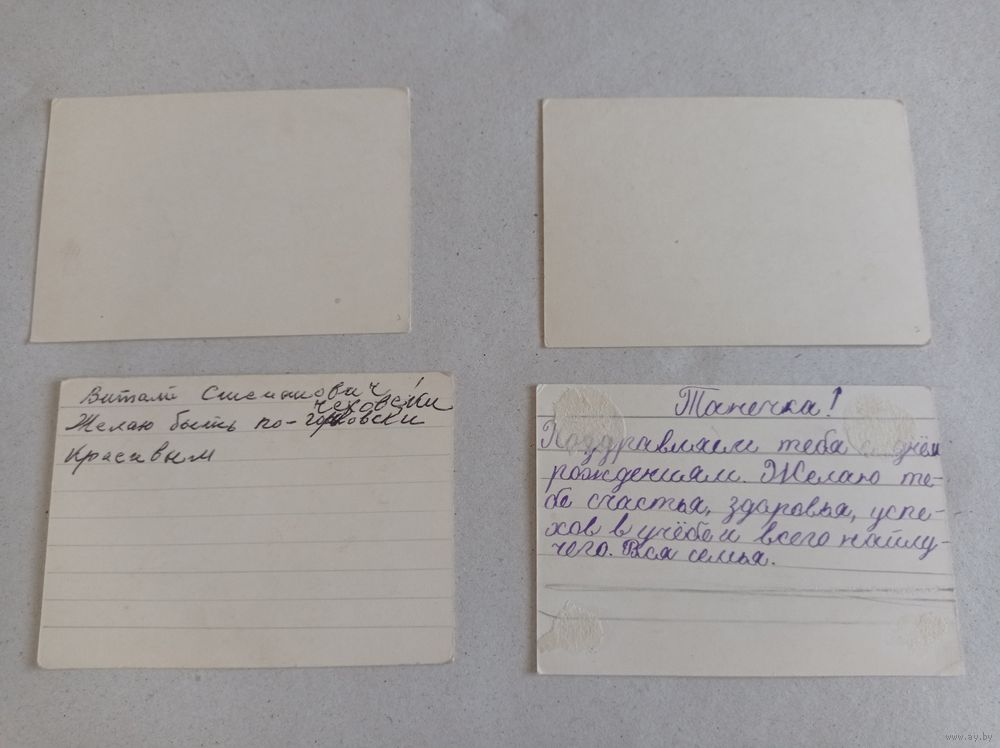 Виталий Степанович!
чеховски
Желаю быть по-горьковски
красивым
Танечка!
Поздравляем тебя с днём
рождениям. Желаю те-
бе счастья, здаровья, успе-
хов в учёбе и всего найлу-
чего. Вся семья.
www.ay.by